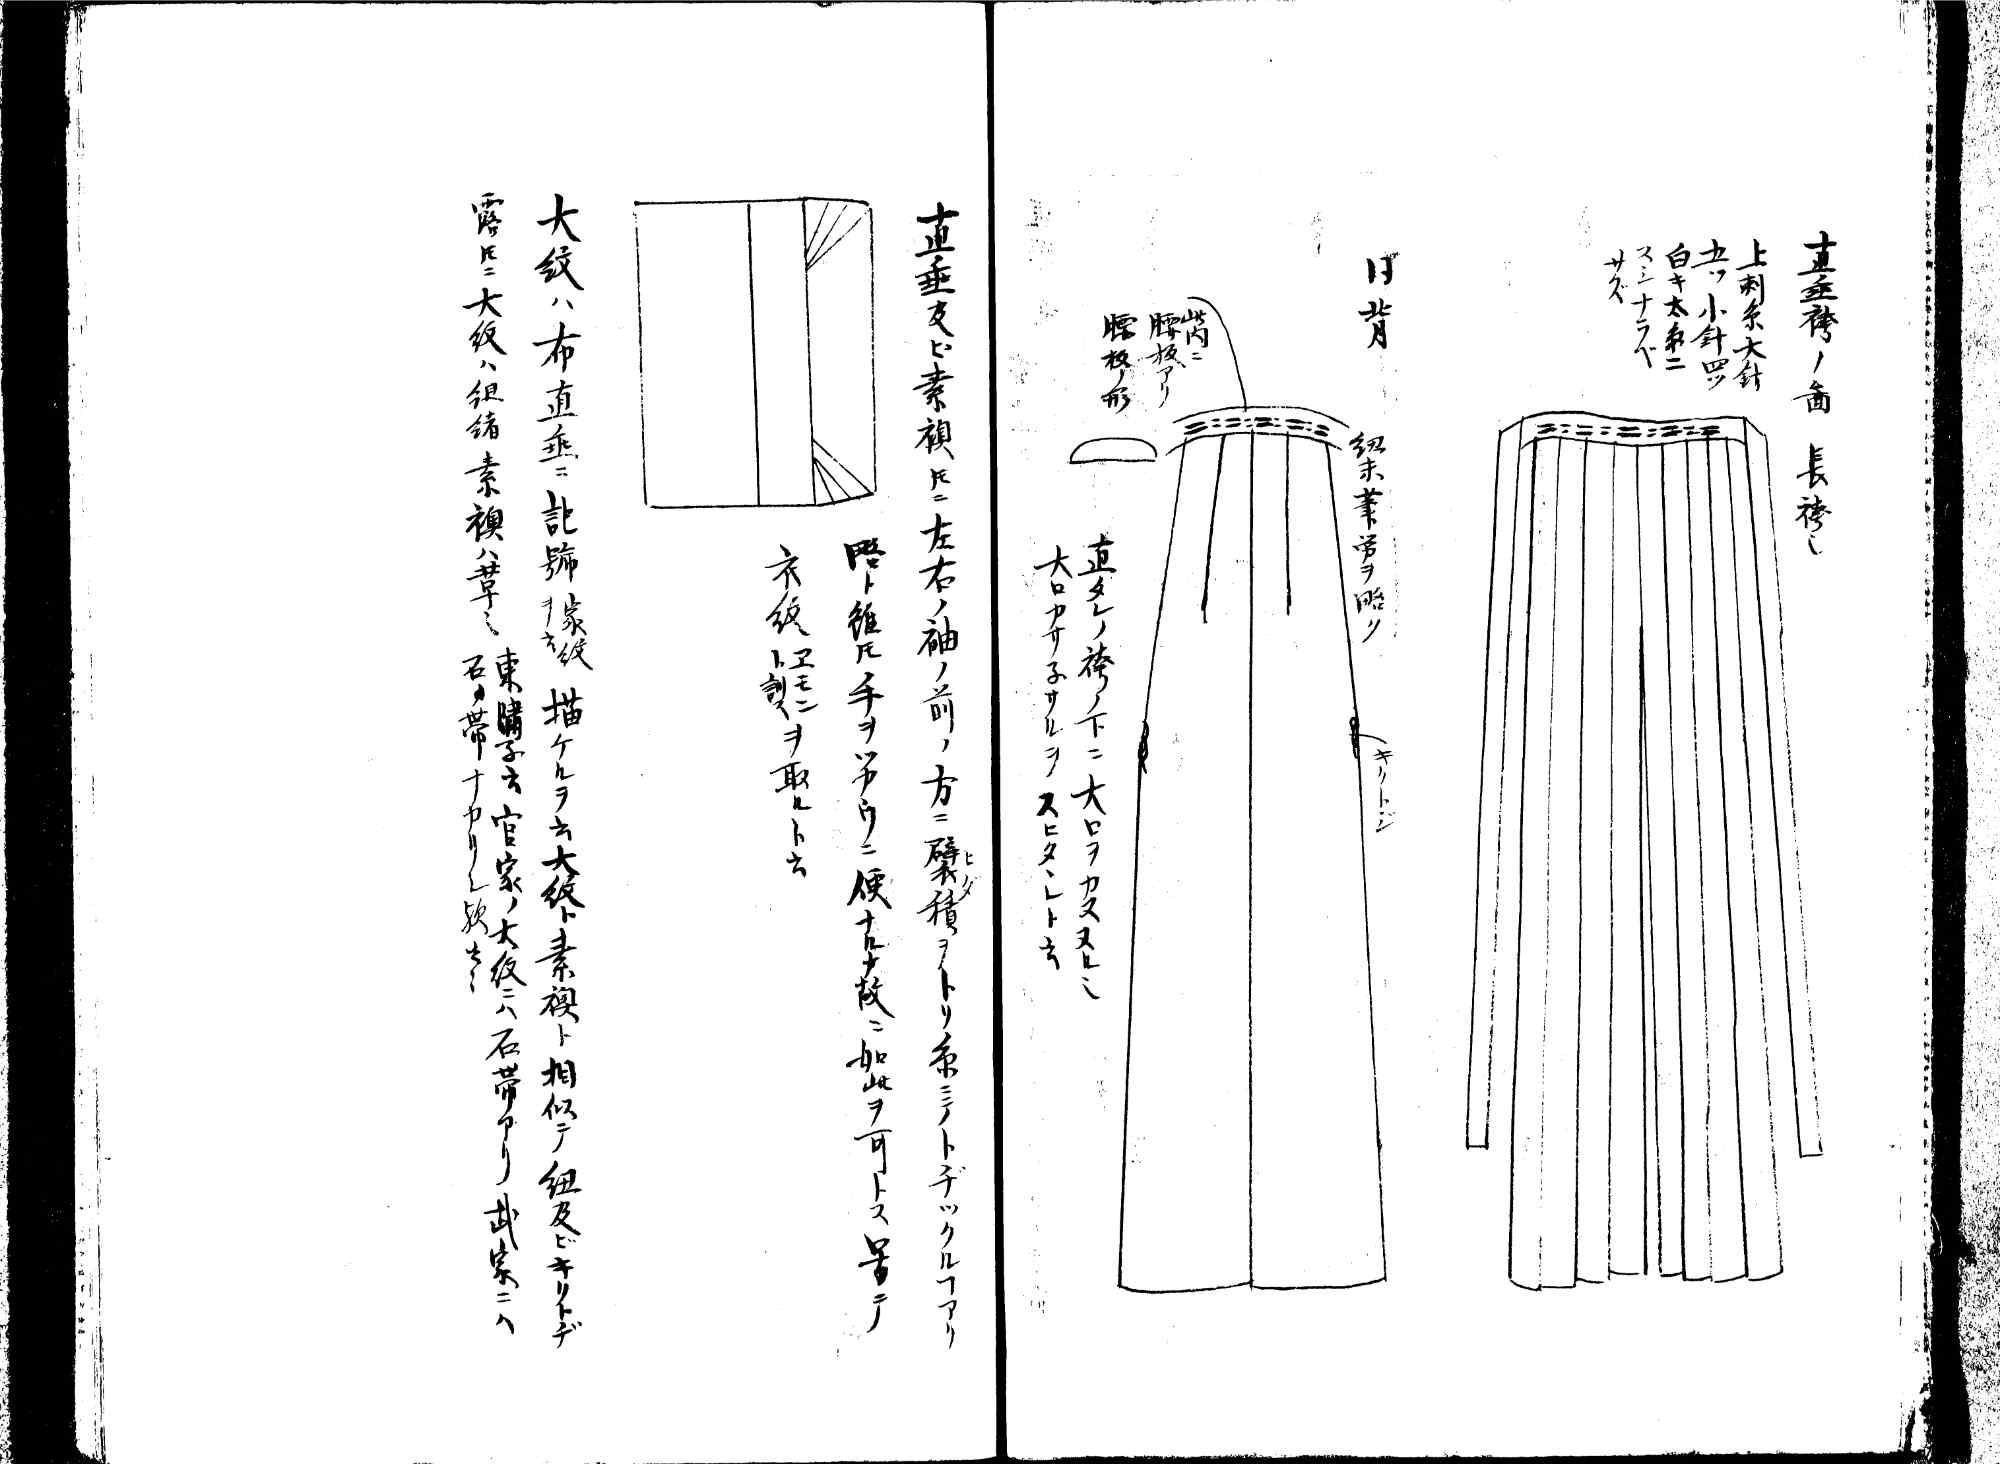 直垂袴ノ圖 長袴也
上刺糸大針
五ツ小針四ツ
白キ太糸ニ
スジナラベ
サス
同背
紐末筆労ヲ略ツ
キリトジ
此内ニ
腰板アリ
腰板ノ形
直タレノ袴ノ下ニ大口ヲカヌヌル也
大口カサ子サルヲスヒタヽレト云
直垂及ビ素襖ㇳモニ左右ノ袖ノ前ノ方ニ襞積ヲトリ糸ニテトヂツクルヿアリ
ヒダ
略ト雖ㇳモ手ヲツカウニ便ナル
故ニ如此ヲ可トス 畧テ
衣紋 ヱモンヲ取ルト云
大紋ハ布直垂ニ記號 家紋ヲ云 描ケルヲ云大紋ト素襖ト相似テ紐及ビキリトヂ
露ㇳモニ大紋ハ組緒素襖ハ革也 東牗子云官家ノ大紋ニハ石帯アリ武家ニハ
石ノ帯ナカリシ歟云々